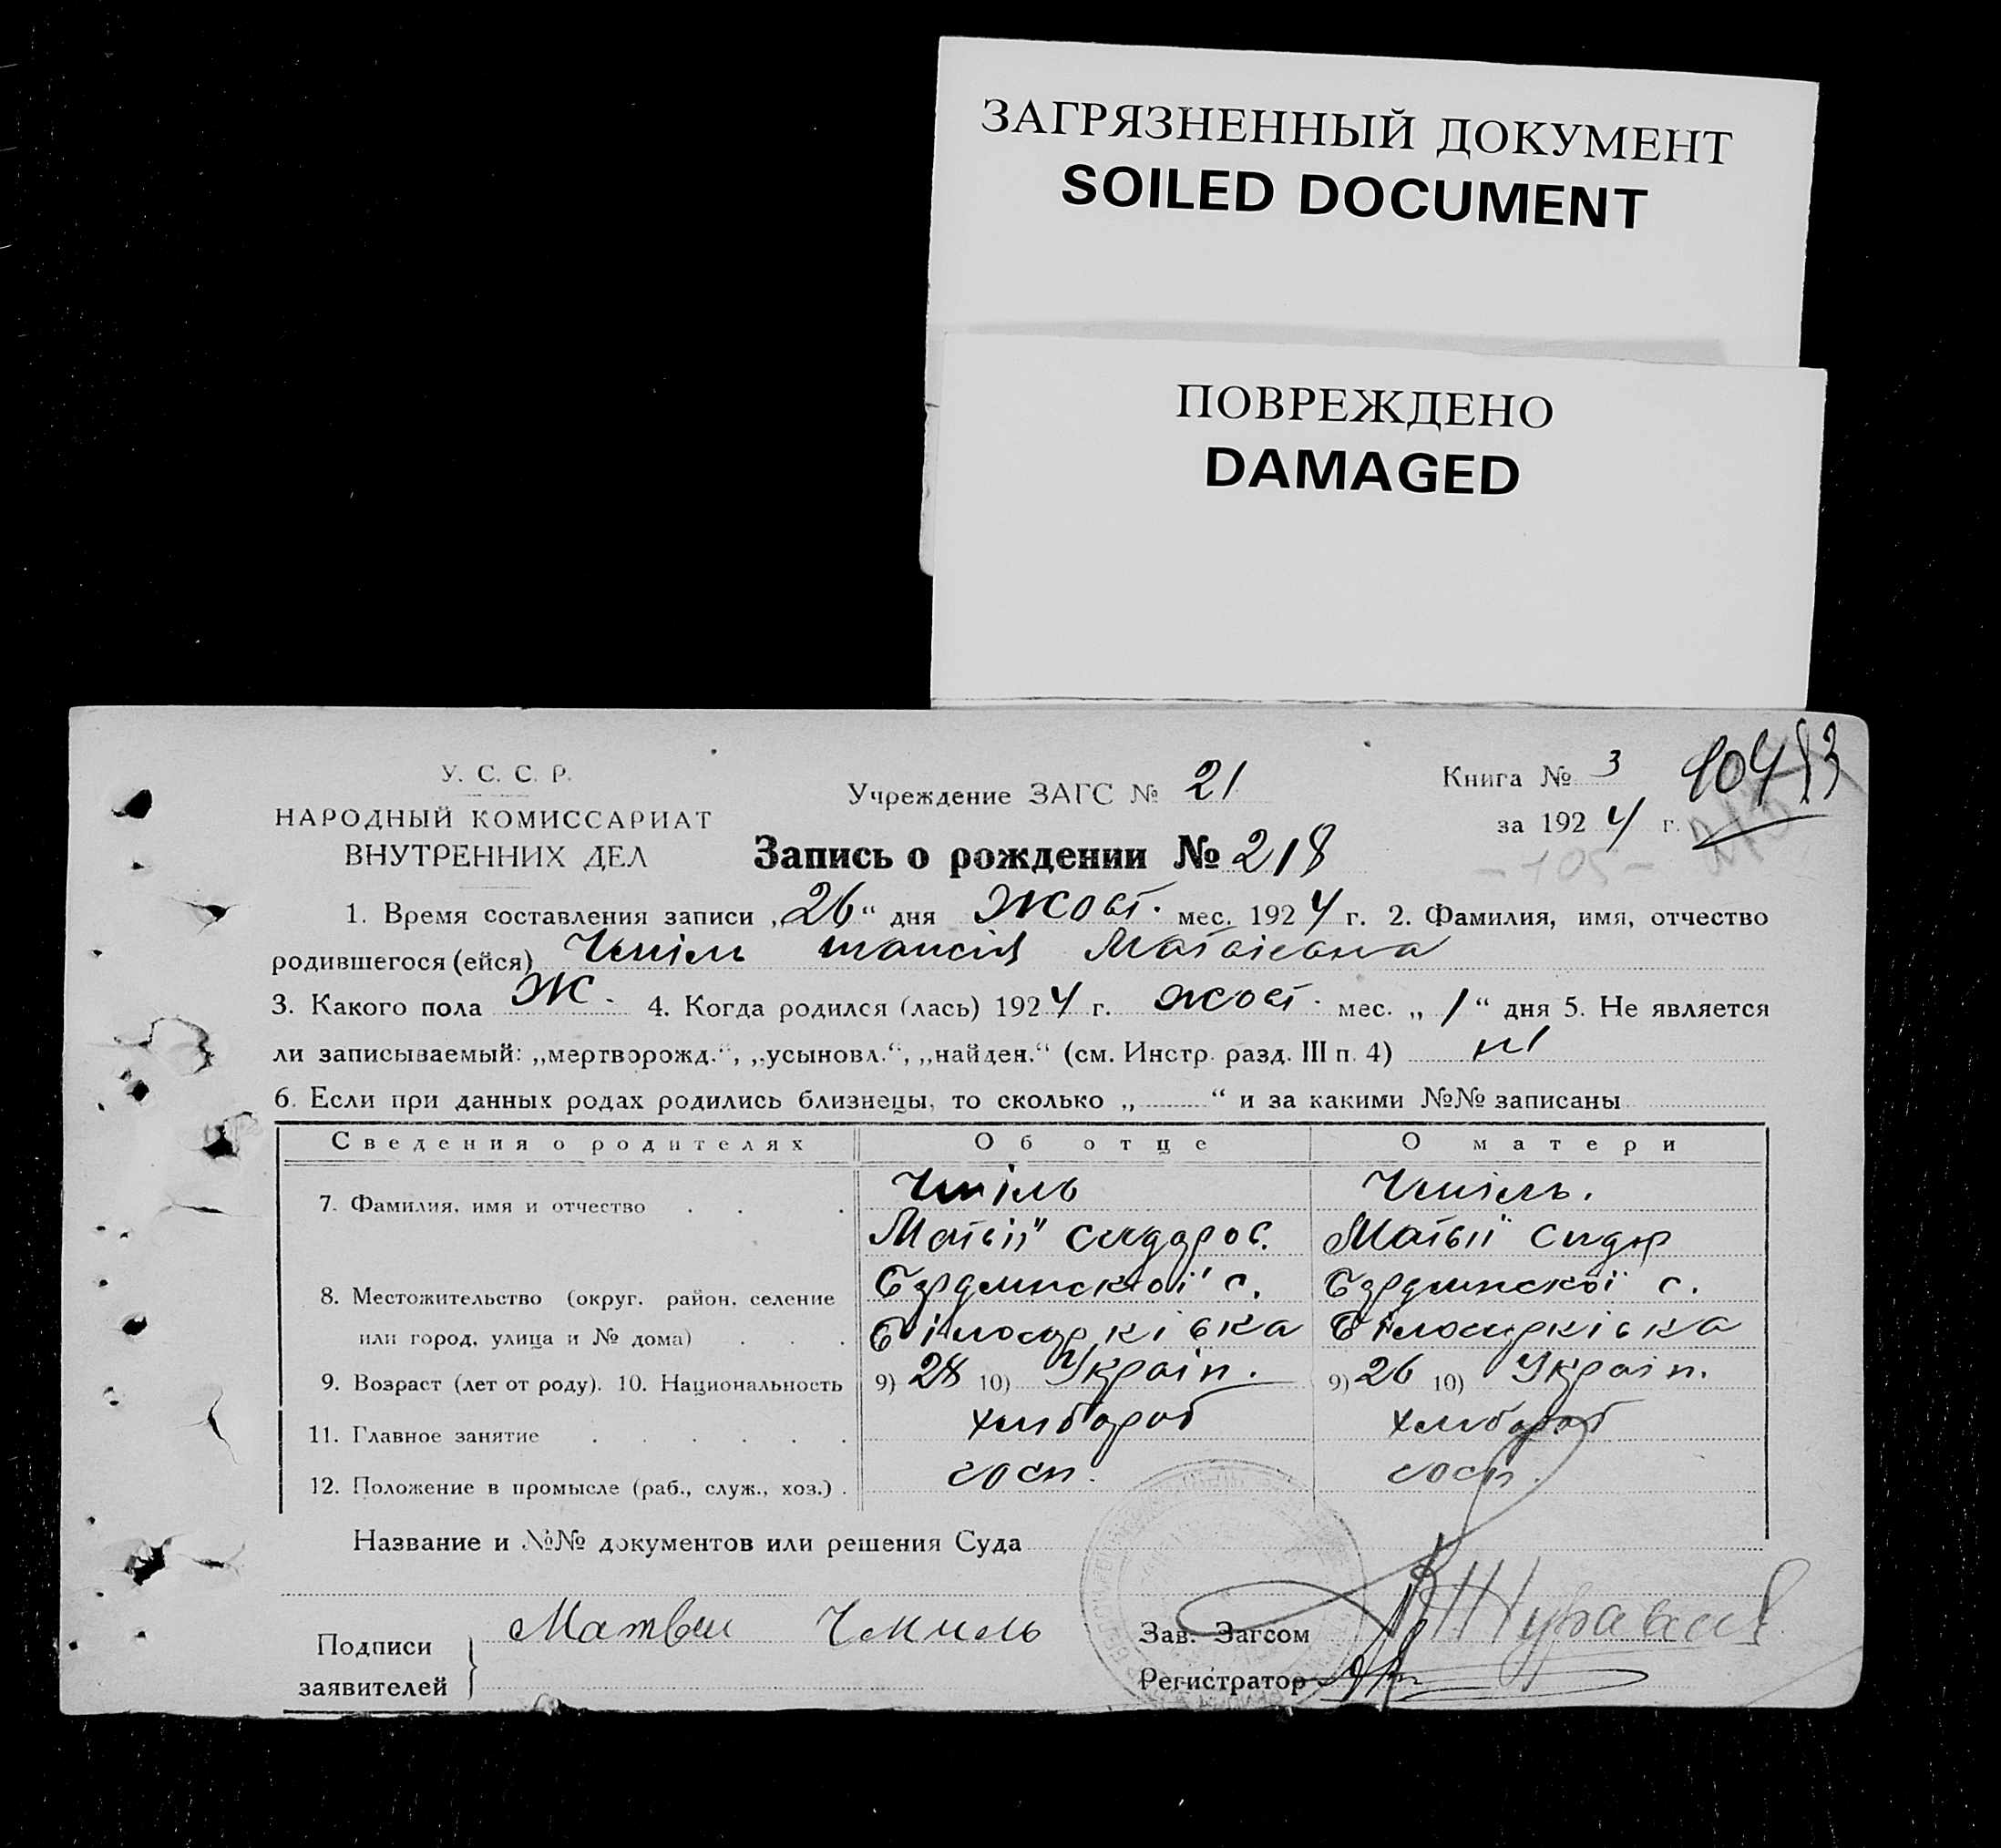 ЗАГРЯЗНЕННЫЙ ДОКУМЕНТ
SOILED DOCUMENT
ПОВРЕЖДЕНО
DAMAGED
У. С. С. Р.
НАРОДНЫЙ КОМИССАРИАТ
ВНУТРЕННИХ ДЕЛ
Учреждение ЗАГС № 21
Книга № 3
за 1924 г.
Запись о рождении № 218
- 105 -
1. Время составления записи „26“ дня Жовт. мес. 1924 г. 2. Фамилия, имя, отчество
родившегося (ейся) Чміль Матвіевна
3. Какого пола Ж. 4. Когда родился (лась) 1924 г. жовт. мес. „1“ дня 5. Не является
ли записываемый: „мертворожд.“, „усыновл.“, „найден.“ (см. Инстр. разд. III п. 4) ні
6. Если при данных родах родились близнецы, то сколько „ “ и за какими №№ записаны
Сведения о родителях Об отце О матери
7. Фамилия, имя и отчество Чміль Чміль.
Матвій Сидоров. Матвій Сидор
8. Местожительство (округ. район, селение Бердянскої с. Бердянскої с.
или город, улица и № дома) Білоцерківка Білоцерківка
9. Возраст (лет от роду). 10. Национальность 9) 28 10) Україн. 9) 26 10) Україн.
11. Главное занятие хлібороб хлібороб
12. Положение в промысле (раб., служ., хоз.) госп. госп.
Название и №№ документов или решения Суда
Подписи заявителей Матвеи Чмиль
Зав. Загсом
Регистратор